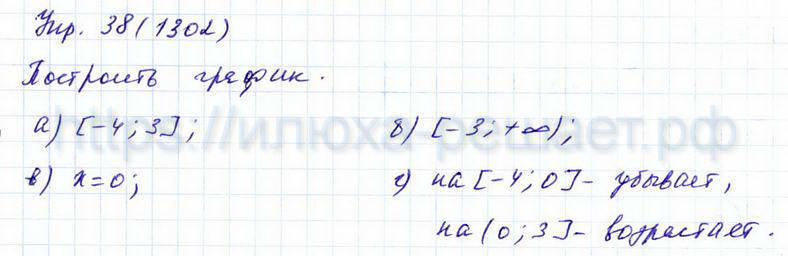 Упр. 38(1302)
Построить график.
а) [-4; 3]; б) [-3; +∞);
в) x=0; г) на [-4; 0] - убывает,
на (0; 3] - возрастает.
https://илюха-решает.рф